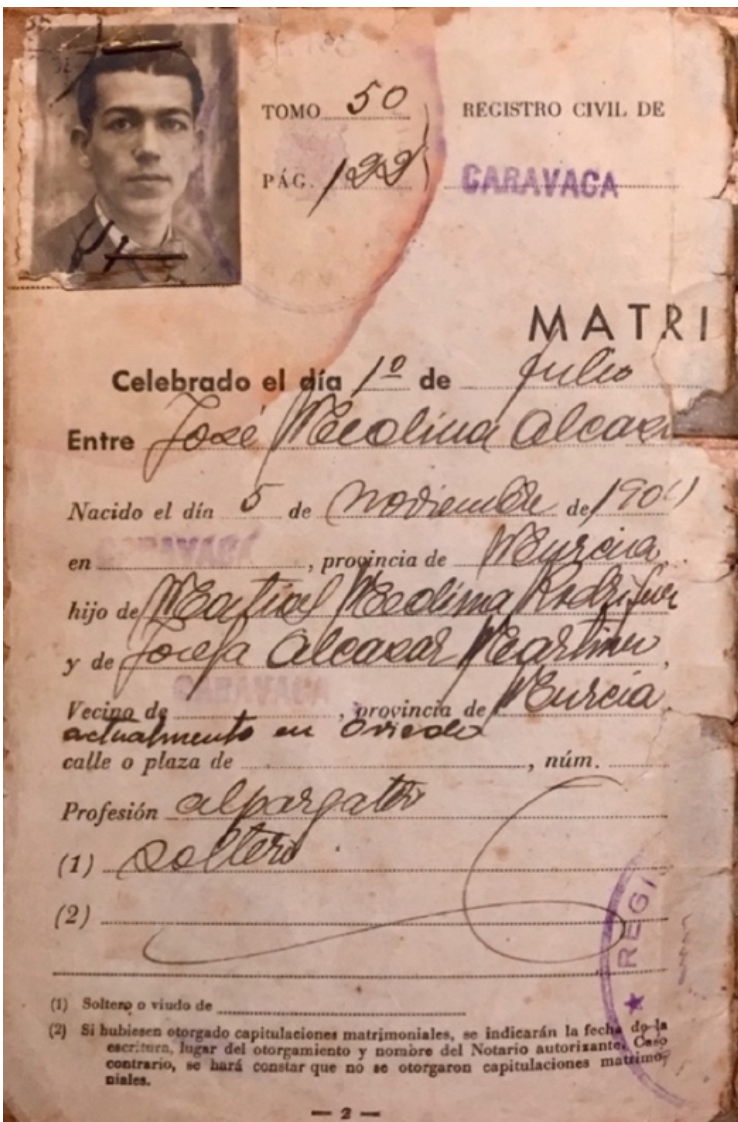 TOMO 50
PÁG. 122
REGISTRO CIVIL DE
CARAVACA
MATRI
Celebrado el día 1º de Julio
Entre José Molina Alcazar
Nacido el día 5 de noviembre de 190
en CARAVACA, provincia de Murcia
hijo de Martial Molina Rodriguez
y de Josefa Alcazar Martinez,
Vecino de CARAVACA, provincia de Murcia
actualmente en Oviedo
calle o plaza de , núm.
Profesión alpargatero
(1) Soltero
(2)
(1) Soltero o viudo de
(2) Si hubiesen otorgado capitulaciones matrimoniales, se indicarán la fecha de la
escritura, lugar del otorgamiento y nombre del Notario autorizante. Caso
contrario, se hará constar que no se otorgaron capitulaciones matrimo-
niales.
REGI
— 2 —